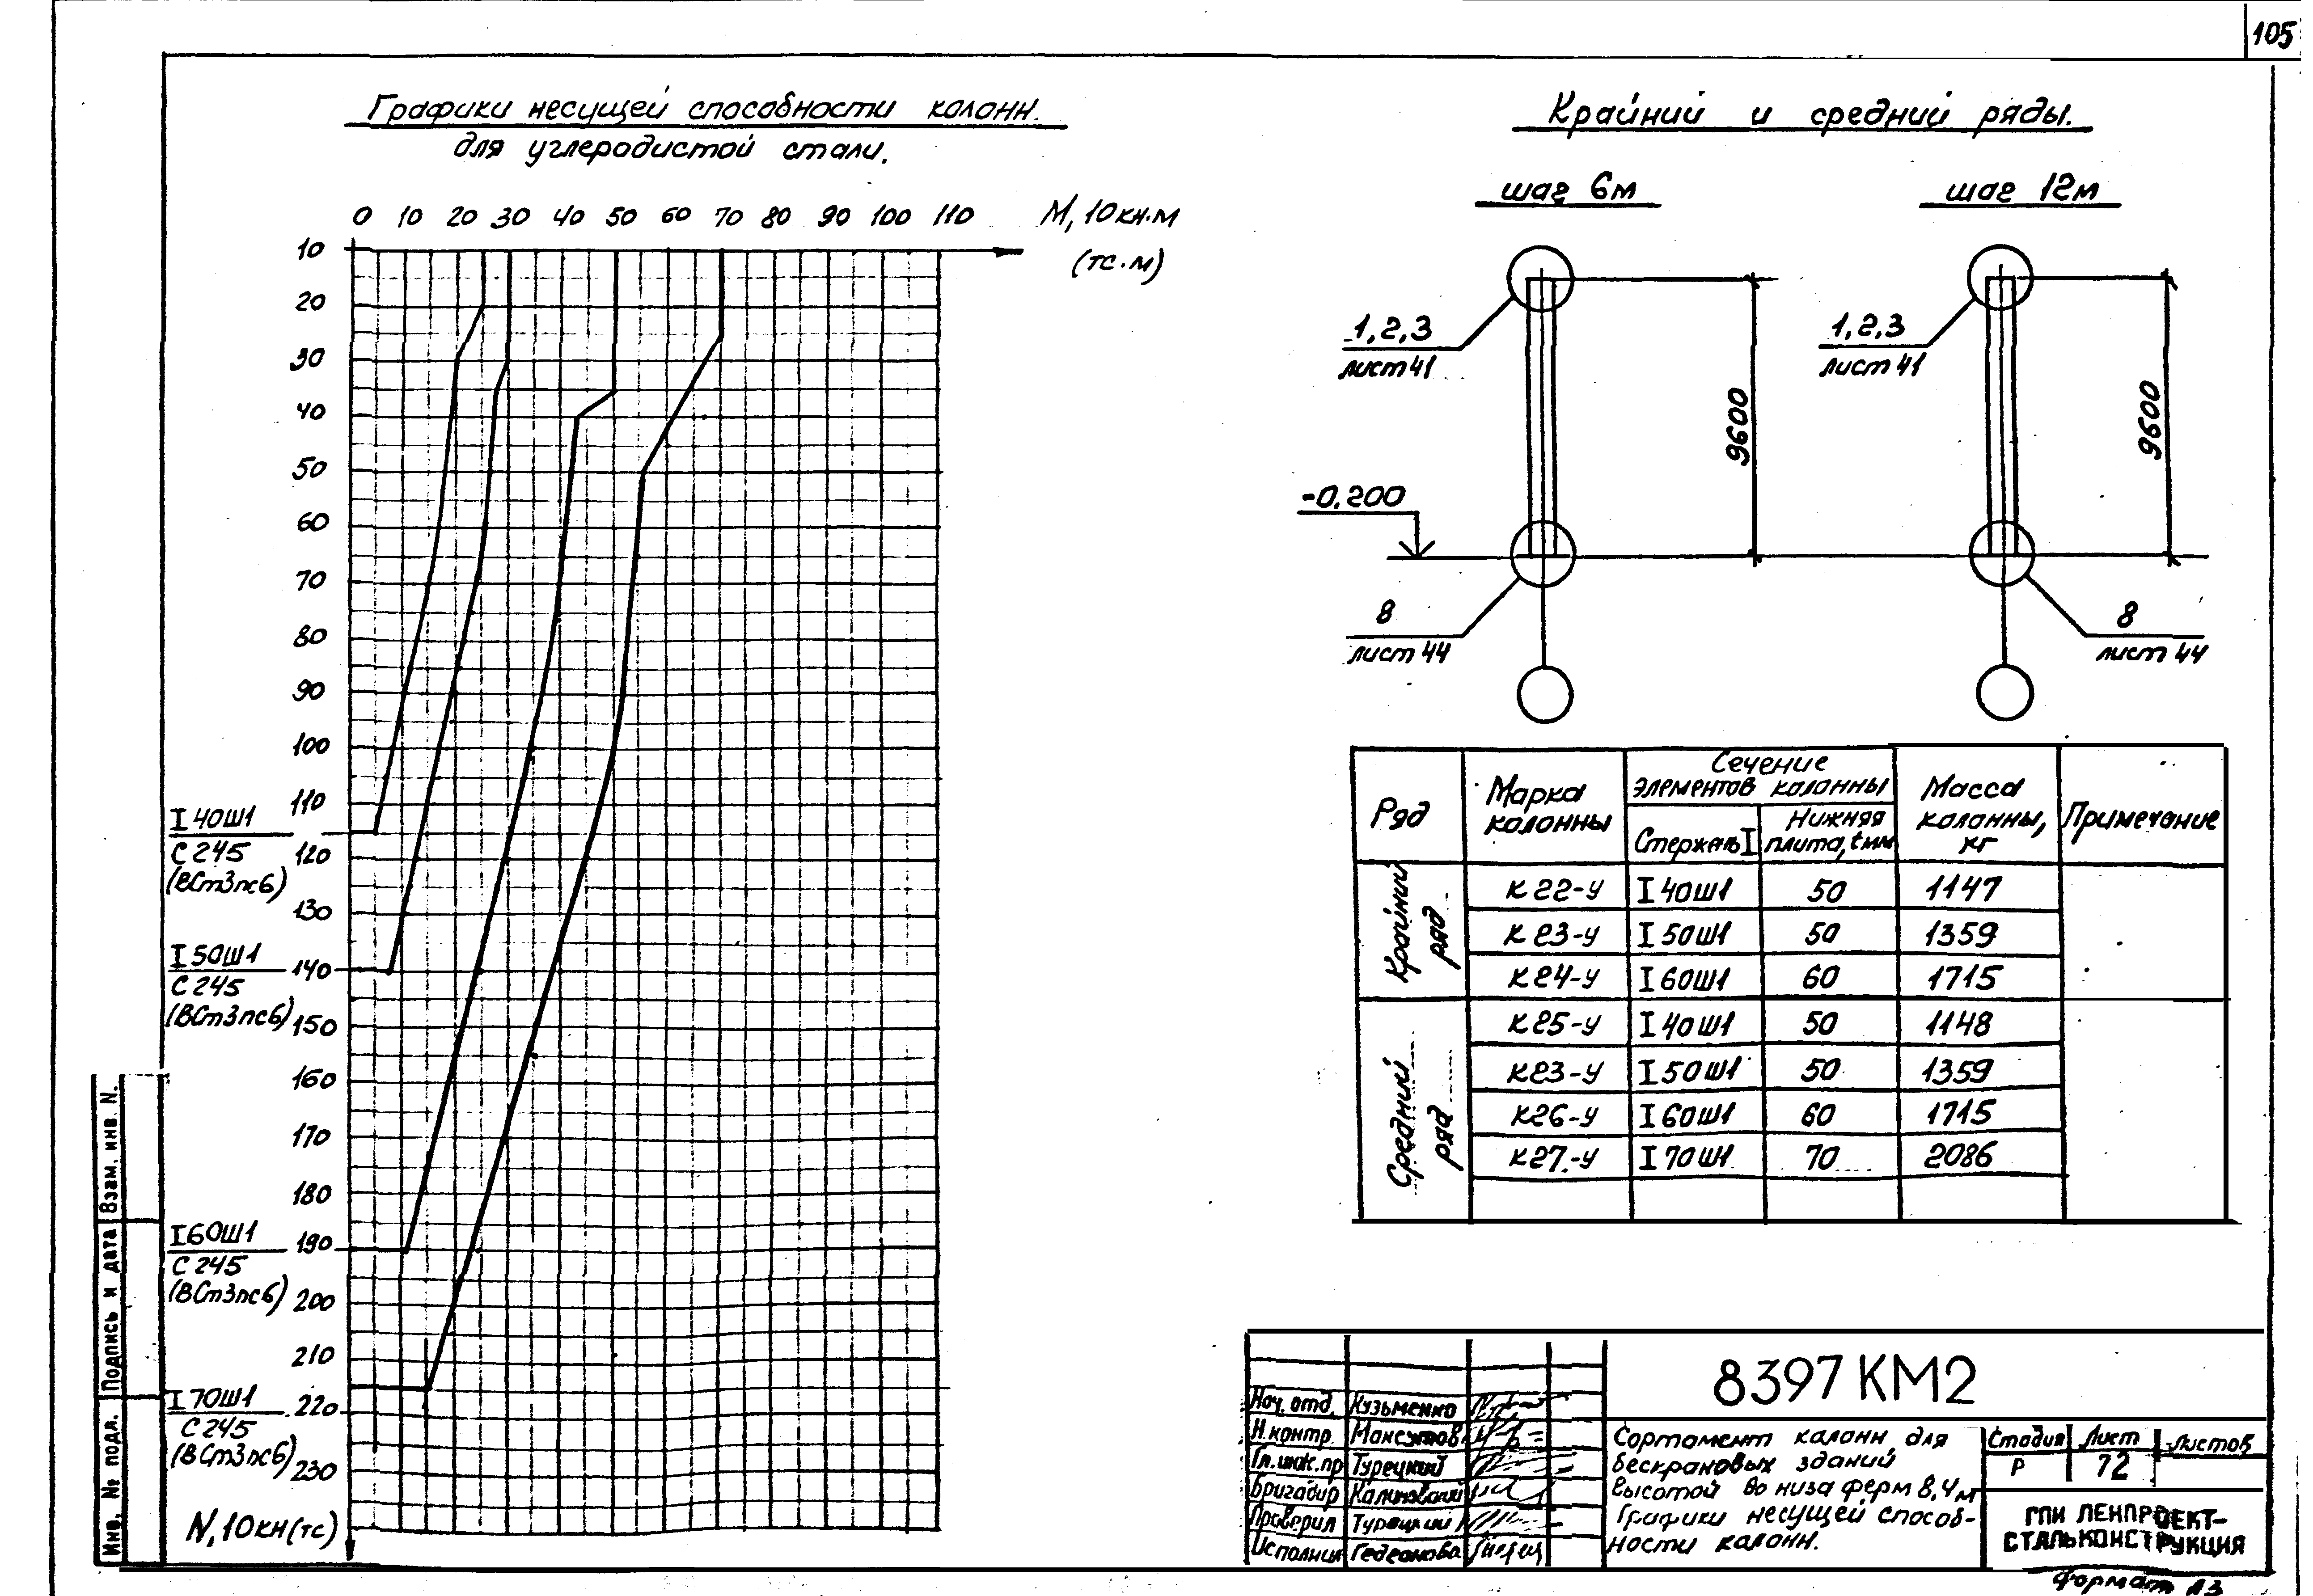 105
Графики несущей способности колонн.
для углеродистой стали.
0 10 20 30 40 50 60 70 80 90 100 110 М, 10кн.м
(тс.м)
10
20
30
40
50
60
70
80
90
100
110
120
130
140
150
160
170
180
190
200
210
220
230
N, 10кн(тс)
I 40Ш1
С 245
(ВСт3пс6)
I 50Ш1
С 245
(ВСт3пс6)
I 60Ш1
С 245
(ВСт3пс6)
I 70Ш1
С 245
(ВСт3пс6)
Крайний и средний ряды.
шаг 6м
шаг 12м
1,2,3
лист 41
1,2,3
лист 41
9600
9600
-0,200
8
лист 44
8
лист 44
Ряд
Марка колонны
Сечение элементов колонны
Стержень I
Нижняя плита, tмм
Масса колонны, кг
Примечание
Крайний ряд
К22-У I 40Ш1 50 1147
К23-У I 50Ш1 50 1359
К24-У I 60Ш1 60 1715
Средний ряд
К25-У I 40Ш1 50 1148
К23-У I 50Ш1 50 1359
К26-У I 60Ш1 60 1715
К27-У I 70Ш1 70 2086
Инв. № подл. Подпись и дата Взам. инв. N.
8397 КМ2
Нач. отд. Кузьменко
Н. контр.
Гл. инж. пр Турецкий
Бригадир Калиновский
Проверил Турецкий
Исполнил Гедеонова
Сортамент колонн для
бескрановых зданий
высотой до низа ферм 8,4м
Графики несущей способ-
ности колонн.
Стадия Лист Листов
Р 72
ГПИ ЛЕНПРОЕКТ-
СТАЛЬКОНСТРУКЦИЯ
Формат А3